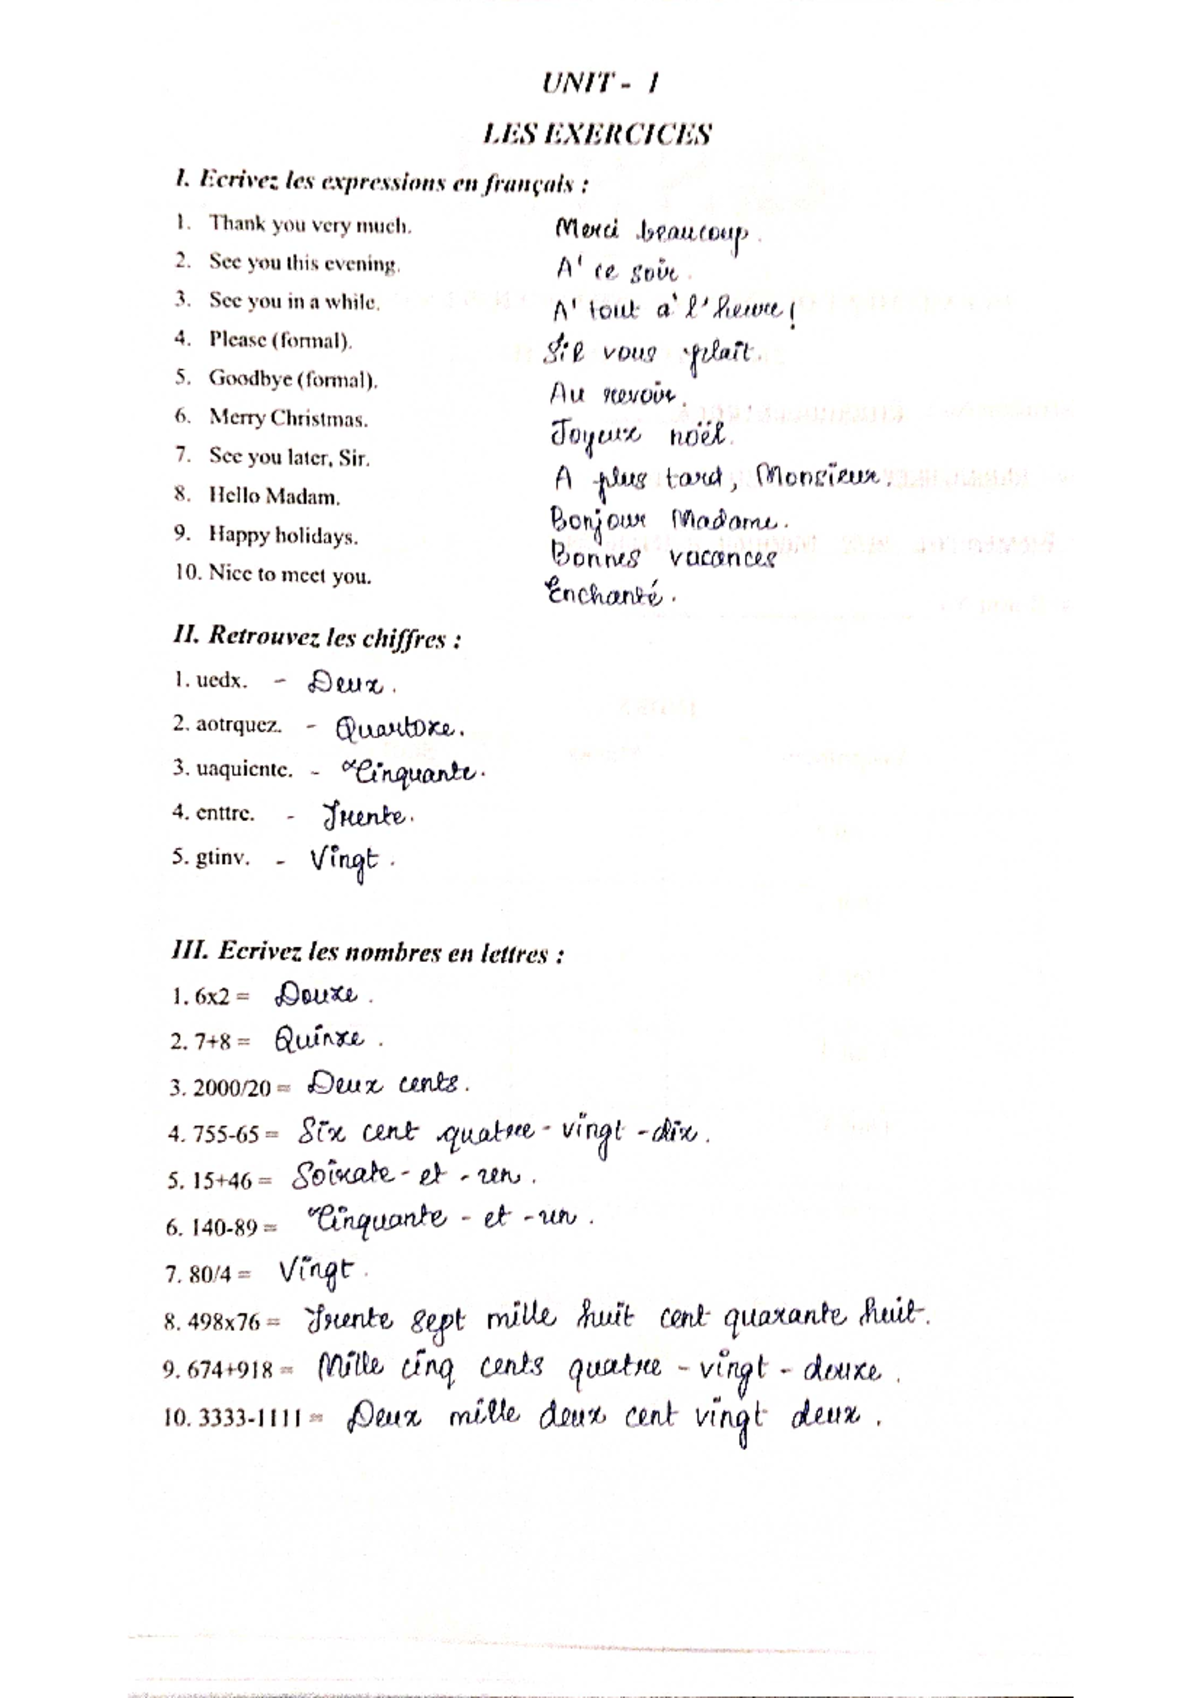 UNIT - 1
LES EXERCICES
I. Ecrivez les expressions en français :
1. Thank you very much. Merci beaucoup.
2. See you this evening. A' ce soir.
3. See you in a while. A' tout a' l'heure!
4. Please (formal). S'il vous plaît.
5. Goodbye (formal). Au revoir.
6. Merry Christmas. Joyeux noël.
7. See you later, Sir. A plus tard, Monsieur.
8. Hello Madam. Bonjour Madame.
9. Happy holidays. Bonnes vacances
10. Nice to meet you. Enchanté.
II. Retrouvez les chiffres :
1. uedx. - Deux.
2. aotrquez. - Quartoze.
3. uaquicntc. - Cinquante.
4. enttre. - Trente.
5. gtinv. - Vingt.
III. Ecrivez les nombres en lettres :
1. 6x2 = Douze.
2. 7+8 = Quinze.
3. 2000/20 = Deux cents.
4. 755-65 = Six cent quatre - vingt - dix.
5. 15+46 = Soixate - et - un.
6. 140-89 = Cinquante - et - un.
7. 80/4 = Vingt.
8. 498x76 = Trente sept mille huit cent quarante huit.
9. 674+918 = Mille cinq cents quatre - vingt - douze.
10. 3333-1111 = Deux mille deux cent vingt deux.